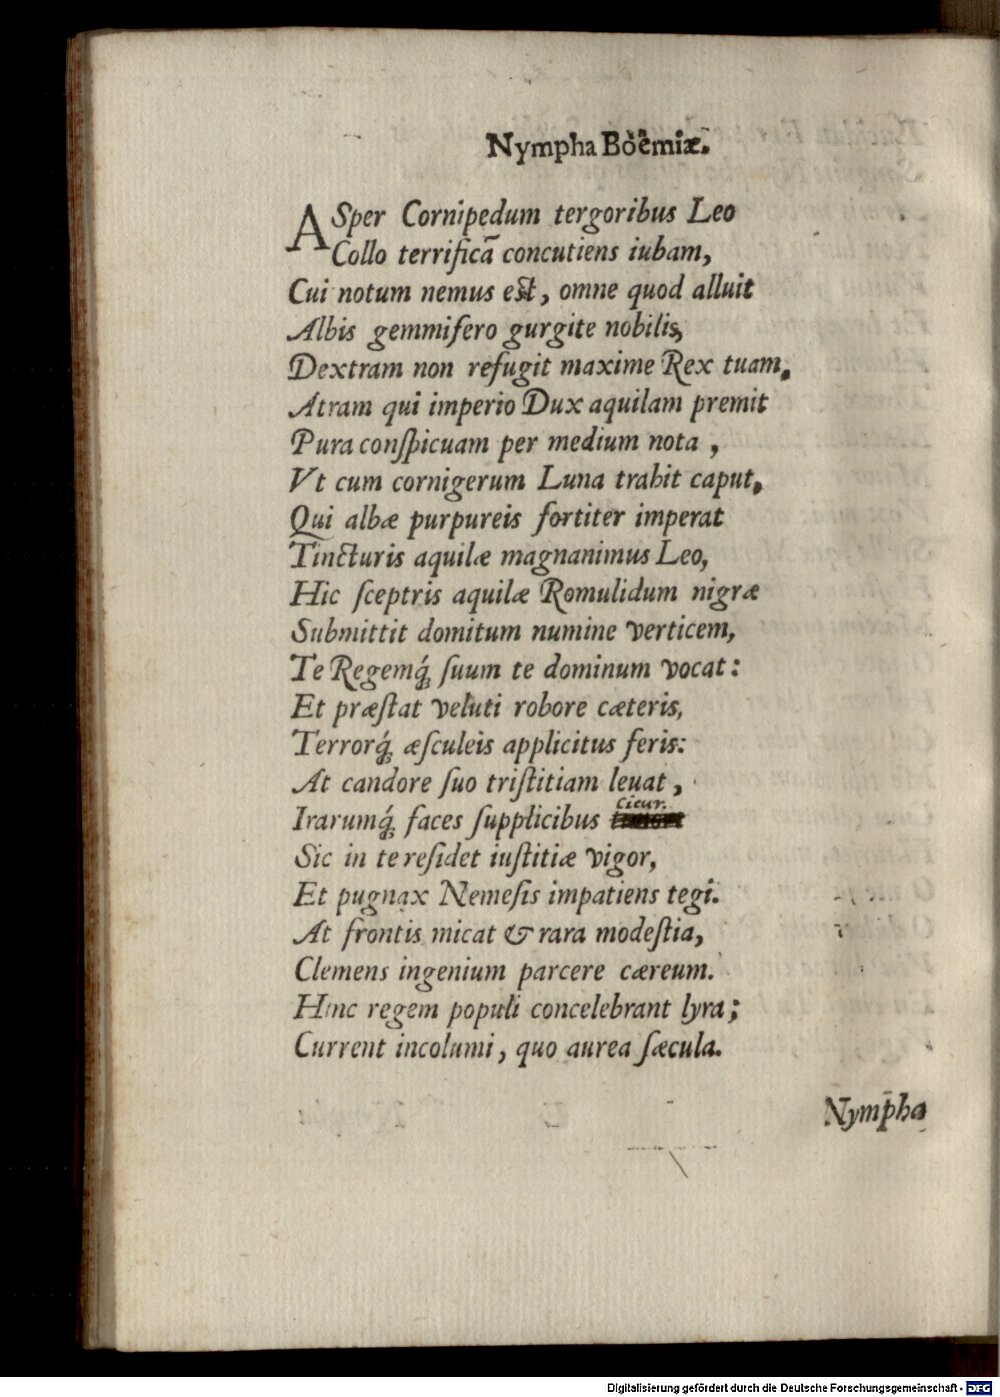 Nympha Boëmiæ.
ASper Cornipedum tergoribus Leo
Collo terrificā concutiens iubam,
Cui notum nemus est, omne quod alluit
Albis gemmifero gurgite nobilis,
Dextram non refugit maxime Rex tuam,
Atram qui imperio Dux aquilam premit
Pura conſpicuam per medium nota,
Vt cum cornigerum Luna trahit caput,
Qui albæ purpureis fortiter imperat
Tincturis aquilæ magnanimus Leo,
Hic ſceptris aquilæ Romulidum nigræ
Submittit domitum numine verticem,
Te Regemq́; ſuum te dominum vocat:
Et præſtat veluti robore cæteris,
Terrorq́; æſculeis applicitus feris:
At candore ſuo triſtitiam leuat,
Irarumq́; faces ſupplicibus cicur.
Sic in te reſidet iuſtitiæ vigor,
Et pugnax Nemeſis impatiens tegi.
At frontis micat & rara modeſtia,
Clemens ingenium parcere cæreum.
Hinc regem populi concelebrant lyra;
Current incolumi, quo aurea ſæcula.
Nympha
Digitalisierung gefördert durch die Deutsche Forschungsgemeinschaft - DFG